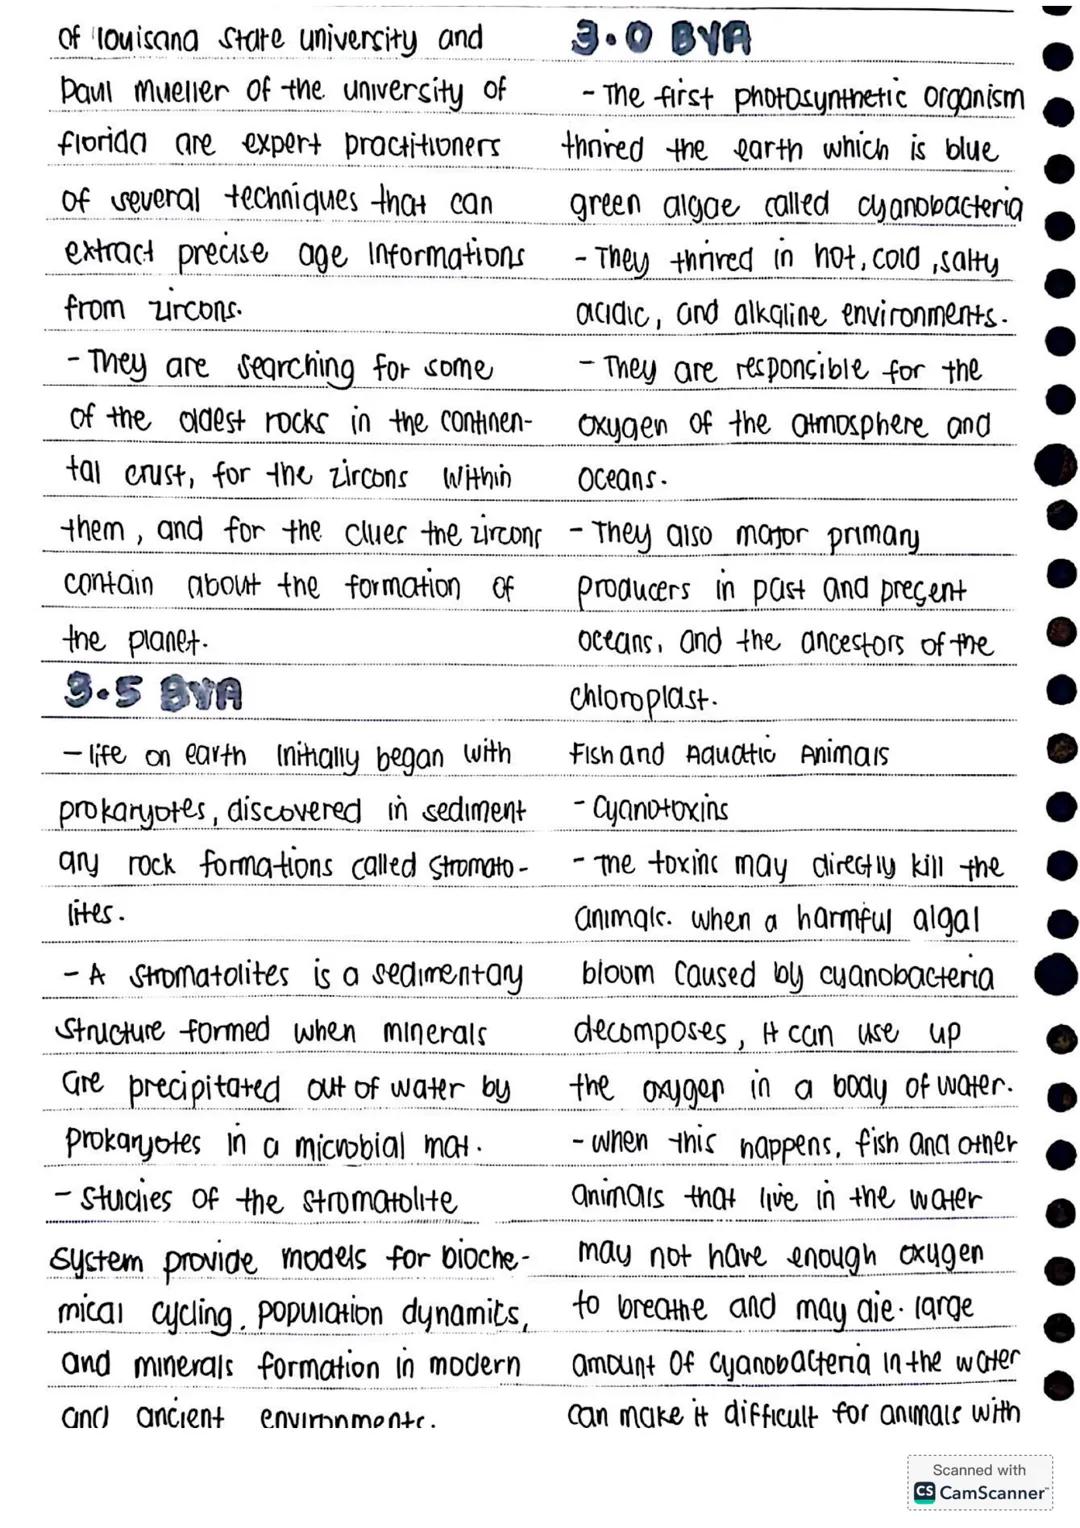 of louisana state university and
Paul Mueller of the university of
florida are expert practitioners
of several techniques that can
extract precise age Informations
from zircons.
- They are searching for some
of the oldest rocks in the continen-
tal crust, for the zircons within
them, and for the clues the zircons
contain about the formation of
the planet.
3.5 BYA
- life on earth Initially began with
prokaryotes, discovered in sediment
ary rock formations called stromato-
lites.
- A stromatolites is a sedimentary
structure formed when minerals
are precipitated out of water by
prokaryotes in a microbial mat.
- studies of the stromatolite
system provide models for bioche-
mical cycling, population dynamics,
and minerals formation in modern
and ancient environments.
3.0 BYA
- The first photosynthetic organism
thrived the earth which is blue
green algae called cyanobacteria
- They thrived in hot, cold, salty
acidic, and alkaline environments.
- They are responsible for the
oxygen of the atmosphere and
oceans.
- They also major primary
producers in past and present
oceans, and the ancestors of the
chloroplast.
Fish and Aquatic Animals
- Cyanotoxins
- The toxins may directly kill the
animals. when a harmful algal
bloom caused by cyanobacteria
decomposes, it can use up
the oxygen in a body of water.
- when this happens, fish and other
animals that live in the water
may not have enough oxygen
to breathe and may die. large
amount of cyanobacteria in the water
can make it difficult for animals with
Scanned with
CS CamScanner